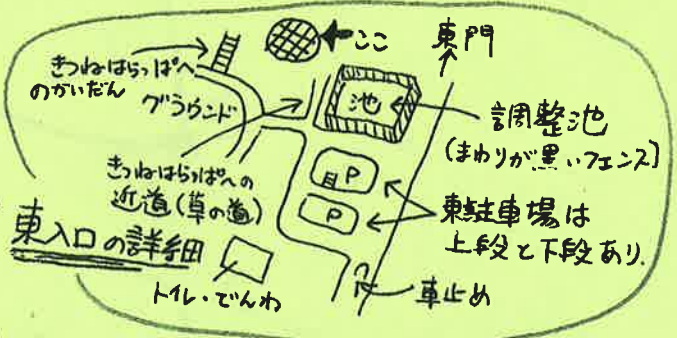 ここ
東門
きつねはらっぱへ
のかいだん
グラウンド
池
調整池
(まわりが黒いフェンス)
きつねはらっぱへの
近道(草の道)
P
P
東駐車場は
上段と下段あり.
東入口の詳細
トイレ・でんわ
車止め